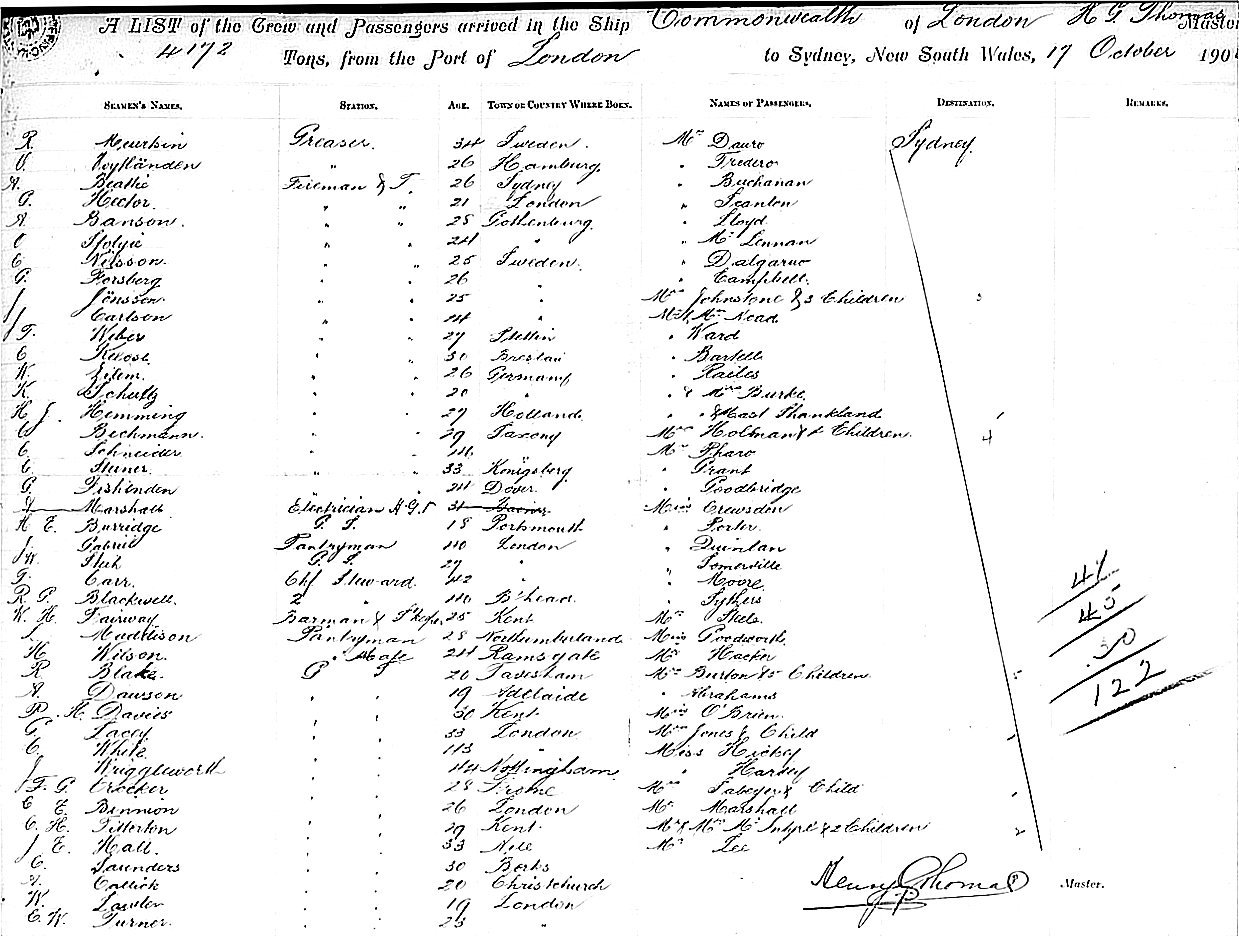 A LIST of the Crew and Passengers arrived in the Ship Commonwealth of London H G Thomas Master
4172 Tons, from the Port of London to Sydney, New South Wales, 17 October 190
SEAMEN'S NAMES. STATION. AGE. TOWN OR COUNTRY WHERE BORN. NAMES OF PASSENGERS. DESTINATION. REMARKS.
R. Greaser. 34 Sweden. Mrs Dauro Sydney.
" 26 Hamburg. "
A. Beattie Fireman & T. 26 Sydney " Buchanan
G. Hector. " " 21 London " Scanlon
A. Banson. " " 28 Gothenburg. " Lloyd
" " 24 " " Mc Lennan
C Nilsson. " " 25 Sweden. " Dalgarno
G. Forsberg " " 26 " " Campbell.
J Jönsson " " 25 " Mrs Johnstone & 3 Children 3
J. Carlson " " " Mr & Mrs
F. Weber " " 27 Stettin " Ward
C " " 30 Breslau " Bartell
W. " " 26 Germany "
K. Schultz " " 20 " " & Mrs Burke.
H J. Hemming " " 27 Holland. " & Mast Shankland
Bechmann. " " 29 Saxony Mrs Holman & 4 Children. 4
C. Schneider " " Mr Pharo
C. Steiner. " " 33 Königsberg " Grant
G. Fishenden " 24 Dover. " Goodbridge
Marshall Electrician A.G.S 31 Miss Crewsden
H E. Burridge G. S. 18 Portsmouth " Porter.
J. Gabriel Pantryman 40 London " Quinlan
W. G. S. 27 " " Somerville
T. Carr. Chf Steward. 42 " " Moore.
R G. Blackwell. 2 " 40 B'head. " Sythers
W. H. Fairway Barman & Skpr 25 Kent Mr
Maddison Pantryman 28 Northumberland Miss Goodworth
H Wilson. " Mate 24 Ramsgate Mr
R Blake. G S 20 Faversham Mrs Burton & 5 Children. 5
A. Dawson " " 19 Adelaide " Abrahams
P. H. Davies " " 30 Kent. Miss O'Brien.
G. Lacey. " " 33 London. Mrs Jones & Child
C. White. " " 43 " Miss Hickey
J Wriggleworth " " 44 Nottingham. " Harvey
F. G. Crocker " " 28 Frome Mrs & Child
C E. Binnion " " 26 London Mr Marshall
C. H. Titterton " " 29 Kent. Mr & Mrs Mc Intyre & 2 Children 2
J E. Hall. " " 33 Mr Lee
C. Saunders " " 30 Berks
A. " " 20 Christchurch
W. Lawler " " 19 London
C. W. Turner. " " 23 "
47
45
30
122
Henry G Thomas Master.